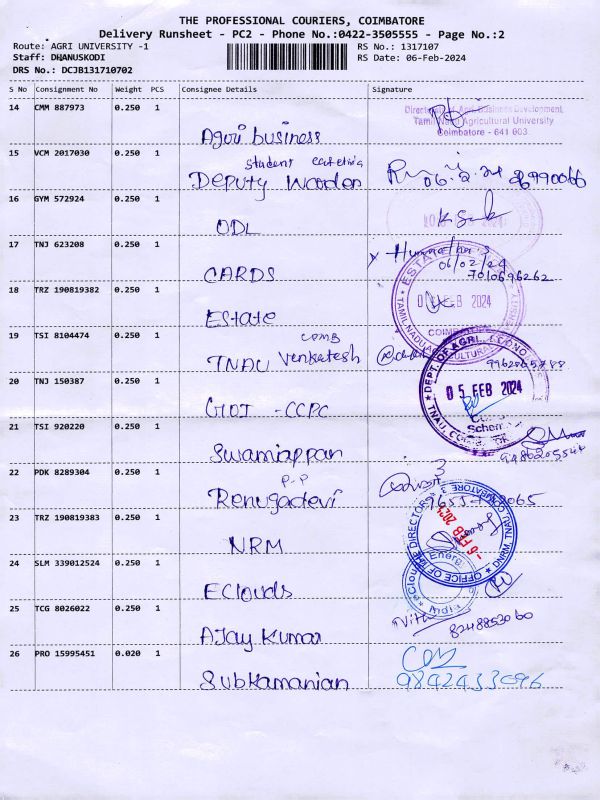 THE PROFESSIONAL COURIERS, COIMBATORE
Delivery Runsheet - PC2 - Phone No.:0422-3505555 - Page No.:2
Route: AGRI UNIVERSITY -1
RS No.: 1317107
Staff: DHANUSKODI
RS Date: 06-Feb-2024
DRS No.: DCJB131710702
S No Consignment No Weight PCS Consignee Details Signature
14 CMM 887973 0.250 1
Agri business
Tamil Nadu Agricultural University
Coimbatore - 641 003.
15 VCM 2017030 0.250 1
student
Deputy Warden
06.2.24
16 GYM 572924 0.250 1
ODL
17 TNJ 623208 0.250 1
CARDS
06/02/24
7010696262
18 TRZ 190819382 0.250 1
Estate
ESTATE
FEB 2024
19 TSI 8104474 0.250 1
TNAU Venkatesh
20 TNJ 150387 0.250 1
GOI - CCPC
DEPT. OF AGRL.
05 FEB 2024
21 TSI 920220 0.250 1
Swamiappan
22 PDK 8289304 0.250 1
P.P
Renugadevi
23 TRZ 190819383 0.250 1
NRM
OFFICE OF THE DIRECTOR
DNRM, TNAU
24 SLM 339012524 0.250 1
EClouds
25 TCG 8026022 0.250 1
Ajay Kumar
8248853060
26 PRO 15995451 0.020 1
Subramanian
9842433096